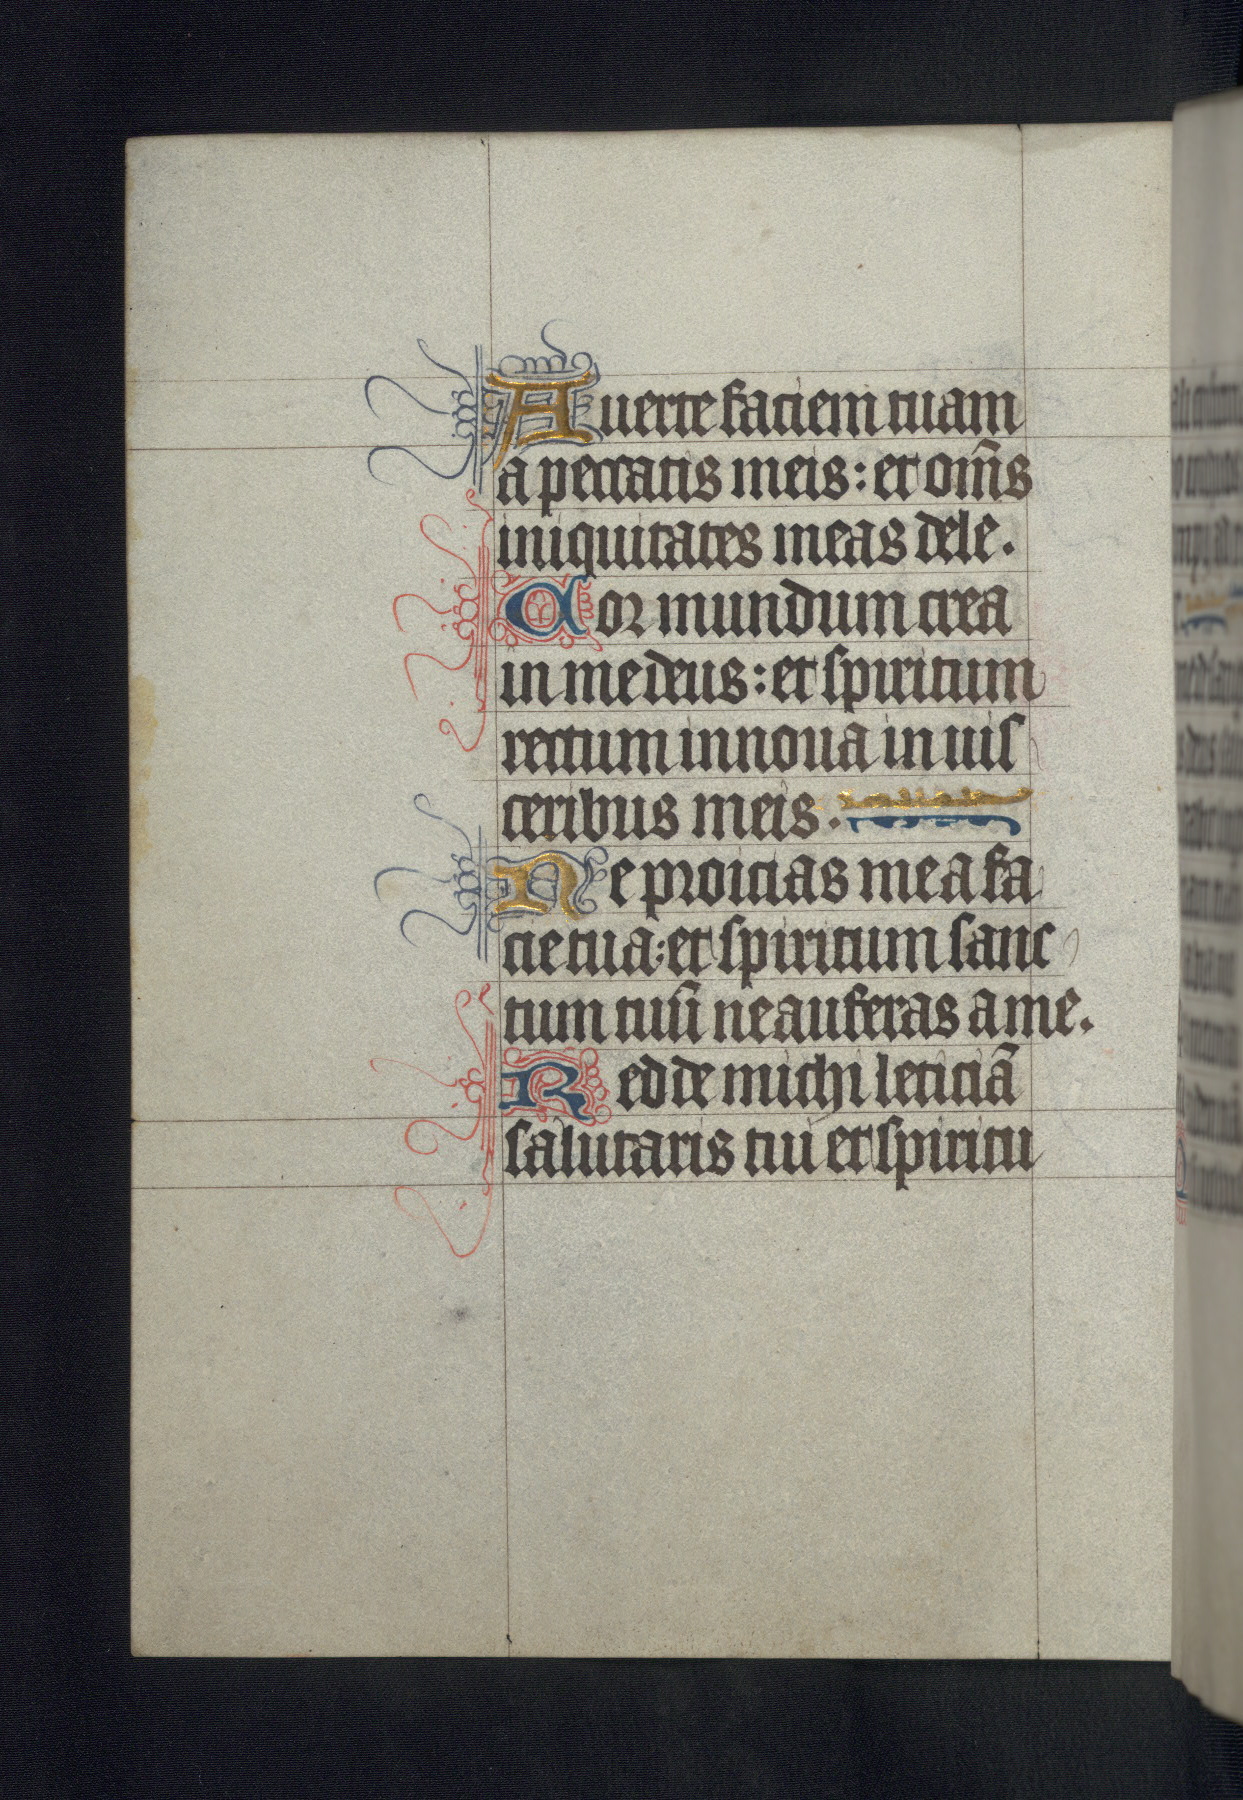 Auerte faciem tuam
a peccatis meis: et om̄s
iniquitates meas dele.
Cor mundum crea
in me deus: et spiritum
rectum innoua in uis
ceribus meis.
Ne proicias me a fa
cie tua: et spiritum sanc
tum tuū ne auferas a me.
Redde michi leticiā
salutaris tui et spiritu